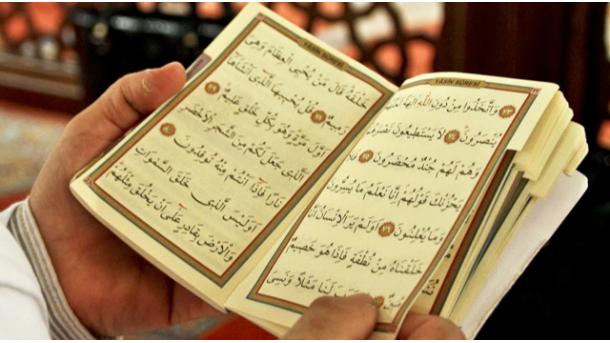 YÂSİN SÛRESİ
وَاتَّخَذُوا مِنْ دُونِ اللّٰهِ اٰلِهَةً
يُنْصَرُونَ ٧٤ لَا يَسْتَطِيعُونَ نَصْرَهُمْ
وَهُمْ لَهُمْ جُنْدٌ مُحْضَرُونَ ٧٥
يَحْزُنْكَ قَوْلُهُمْ اِنَّا نَعْلَمُ مَا يُسِرُّونَ
وَمَا يُعْلِنُونَ ٧٦ اَوَلَمْ يَرَ الْاِنْسَانُ اَنَّا
خَلَقْنَاهُ مِنْ نُطْفَةٍ فَاِذَا هُوَ خَصِيمٌ
لَنَا مَثَلًا وَنَسِيَ
YÂSİN SÛRESİ
خَلْقَهُ قَالَ مَنْ يُحْيِي الْعِظَامَ وَهِيَ
رَمِيمٌ ٧٨ قُلْ يُحْيِيهَا الَّذِي اَنْشَاَهَا
اَوَّلَ مَرَّةٍ وَهُوَ بِكُلِّ خَلْقٍ عَلِيمٌ ٧٩
اَلَّذِي جَعَلَ لَكُمْ مِنَ الشَّجَرِ الْاَخْضَرِ
نَارًا فَاِذَا اَنْتُمْ مِنْهُ تُوقِدُونَ ٨٠
اَوَلَيْسَ الَّذِي خَلَقَ السَّمٰوَاتِ
وَالْاَرْضَ بِقَادِرٍ عَلٰى اَنْ يَخْلُقَ مِثْلَهُمْ